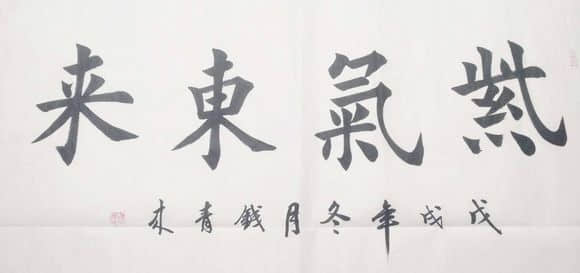 紫氣東来
戊戌年冬月钱青来